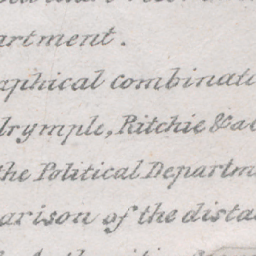 artment.
aphical combinat
lrymple, Ritchie & a
the Political Departm
arison of the dista